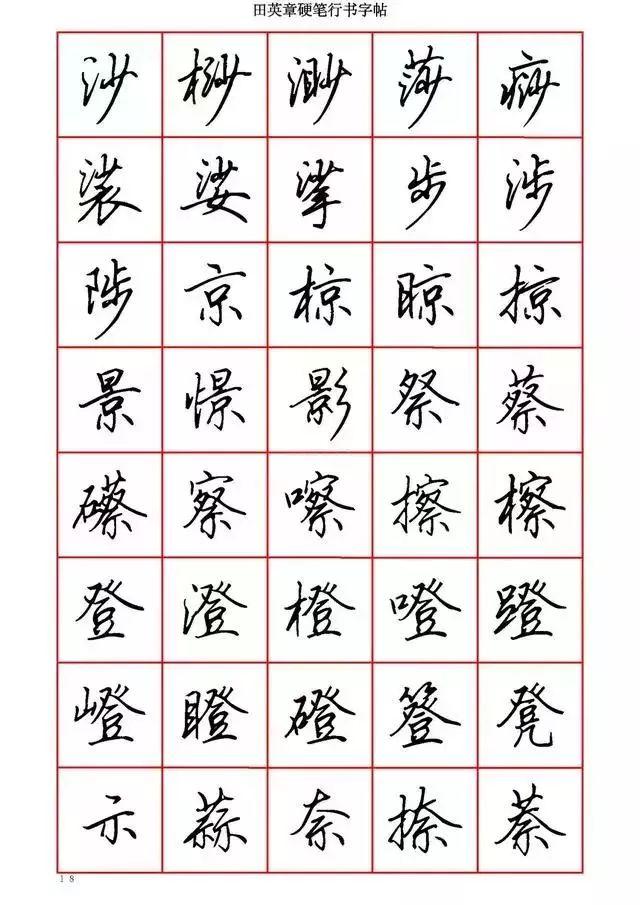 田英章硬笔行书字帖
沙 桫 渺 莎 痧
裟 娑 挲 步 涉
陟 京 椋 晾 掠
景 憬 影 祭 蔡
礤 察 嚓 擦 檫
登 澄 橙 噔 蹬
嶝 瞪 磴 簦 凳
示 蒜 奈 捺 萘
18